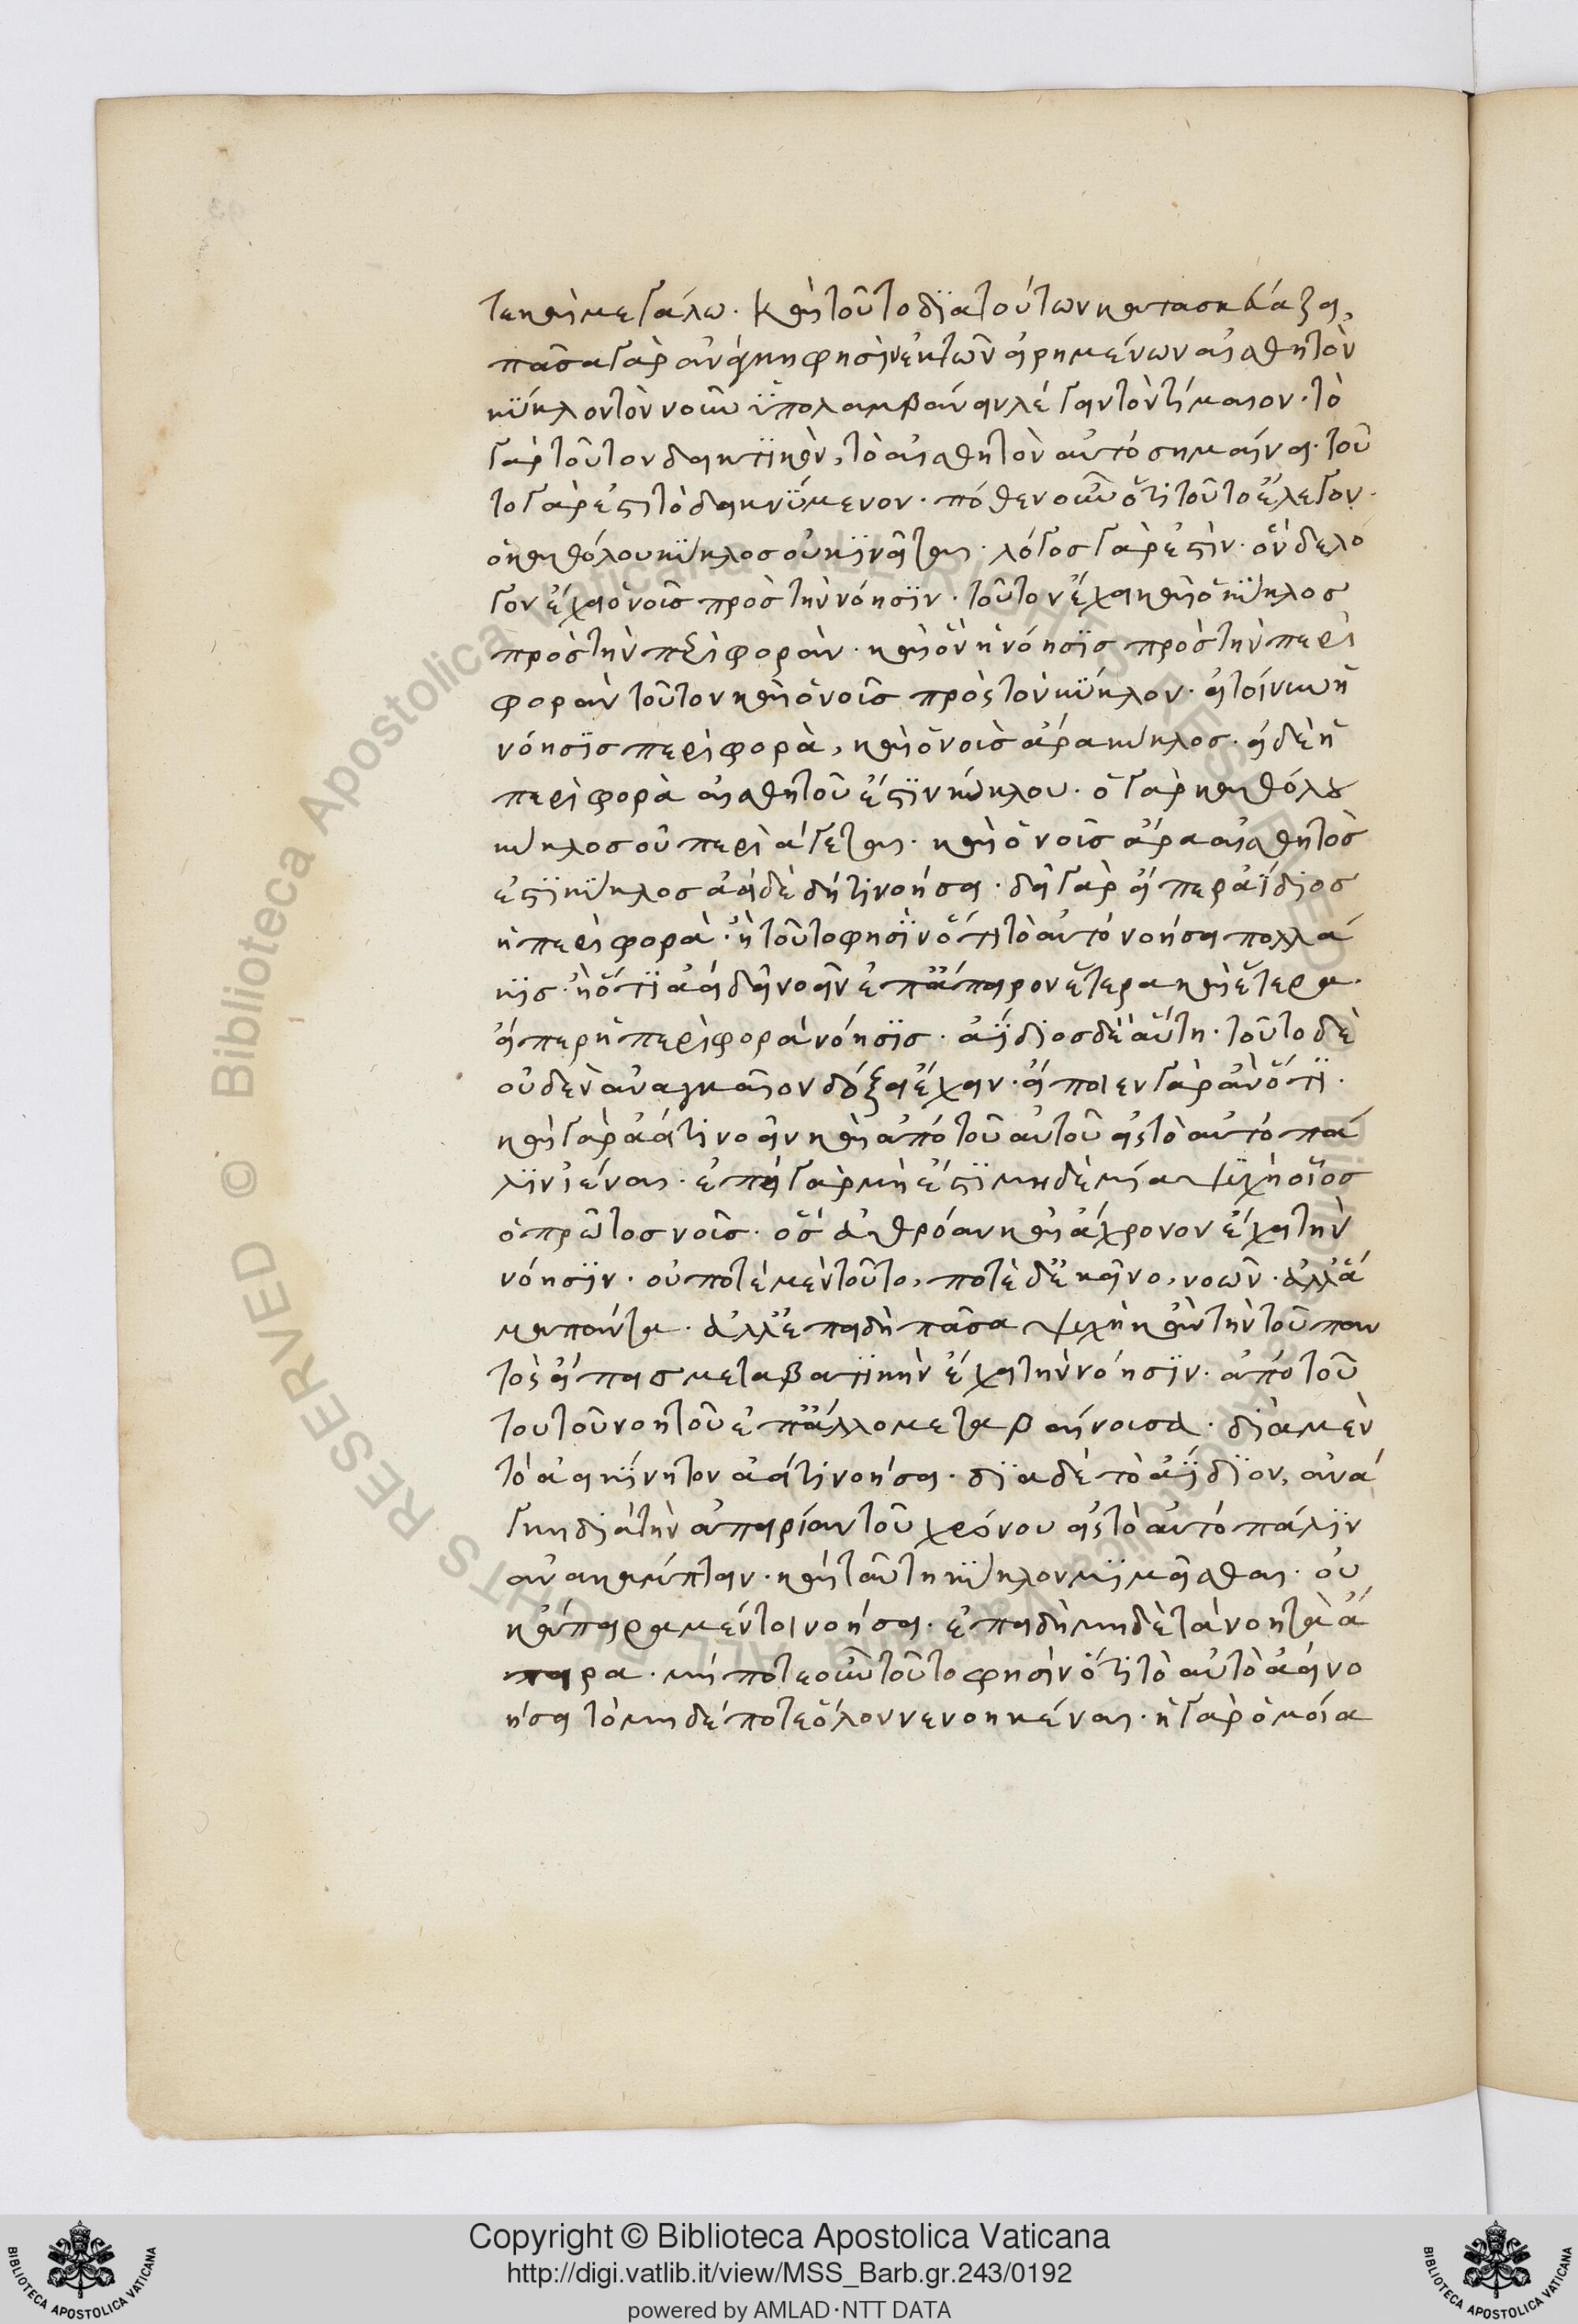 τε καὶ μεγάλω. καὶ τοῦτο δϊα τούτων κατασκευάζει,
πᾶσα γὰρ ἀνάγκη φησὶν ἐκ τῶν εἰρημένων αἰσθητὸν
κϋκλον τὸν νοῦν ϋπολαμβάνειν λέγειν τὸν τίμαιον. τὸ
γὰρ τοῦτον δεικτϊκὸν, τὸ αἰσθητὸν αὐτό σημαίνει. τοῦ
το γὰρ ἐστὶ τὸ δεικνΰμενον. πόθεν οὖν ὅτι τοῦτο ἔλεγον.
ὁ καθόλου κϋκλος οὐ κϊνεῖται. λόγος γὰρ ἐστὶν. ὃν δε λό
γον ἔχει ὁ νοῦς πρὸς τὴν νόησϊν. τοῦτον ἔχει καὶ ὁ κϋκλος
πρὸς τὴν περιφορὰν. καὶ ὃν ἡ νόησϊς πρὸς τὴν περι
φορὰν τοῦτον καὶ ὁ νοῦς πρὸς τὸν κϋκλον. εἰ τοίνυν ἡ
νόησϊς περιφορὰ, καὶ ὁ νοῦς ἄρα κύκλος. εἰ δὲ ἡ
περιφορὰ αἰσθητοῦ ἐστϊν κύκλου. ὁ γὰρ καθόλου
κύκλος οὐ περιάγεται. καὶ ὁ νοῦς ἄρα αἰσθητὸς
ἐστϊ κϋκλος ἀεὶ δὲ δή τι νοήσει. δεῖ γὰρ εἴπερ ἀΐδιος
ἡ περιφορὰ. ἢ τοῦτο φησϊν ὅτι τὸ αὐτό νοήσει πολλά
κϊς. ἢ ὅτϊ ἀεὶ δεῖ νοεῖν ἐπ' ἄπειρον ἕτερα καὶ ἕτερα.
εἴπερ ἡ περιφορά νόησϊς. ἀΐδιος δὲ αὕτη. τοῦτο δὲ
οὐδὲν ἀναγκαῖον δόξει ἔχειν. εἴποιεν γὰρ ἂν ὅτϊ.
καὶ γὰρ ἀεί τι νοεῖν καὶ ἀπὸ τοῦ αὐτοῦ εἰς τὸ αὐτό πά
λϊν ϊέναι. ἐπεὶ γὰρ μὴ ἐστϊ μηδὲ μία ψϋχὴ οἷος
ὁ πρῶτος νοῦς. ὃς ἀθρόαν καὶ ἄχρονον ἔχει τὴν
νόησϊν. οὐ ποτὲ μὲν τοῦτο, ποτὲ δὲ κεῖνο, νοῶν. ἀλλ' ἅ
μα πάντα. ἀλλ' ἐπειδὴ πᾶσα ψυχὴ κἂν τὴν τοῦ παν
τὸς εἴπης μεταβατϊκὴν ἔχει τὴν νόησϊν. ἀπὸ τοῦ
του τοῦ νοητοῦ ἐπ' ἄλλο μεταβαίνουσα. δϊὰ μὲν
τὸ ἀεικίνητον ἀεί τι νοήσει. δϊα δὲ τὸ ἀΐδϊον, ἀνά
γκη διὰ τὴν ἀπειρίαν τοῦ χρόνου εἰς τὸ αὐτό πάλϊν
ἀνακάμπτειν. καὶ ταύτη κϋκλον μϊμεῖσθαι. οὐ
κ ἄπειρα μέντοι νοήσει. ἐπειδὴ μηδὲ τὰ νοητὰ ἄ
πειρα. μή ποτε οὖν τοῦτο φησὶν ὅτι τὸ αὐτὸ ἀεὶ νο
ήσει τὸ μηδέποτε ὅλον νενοηκέναι. ἢ γὰρ ὁμοία